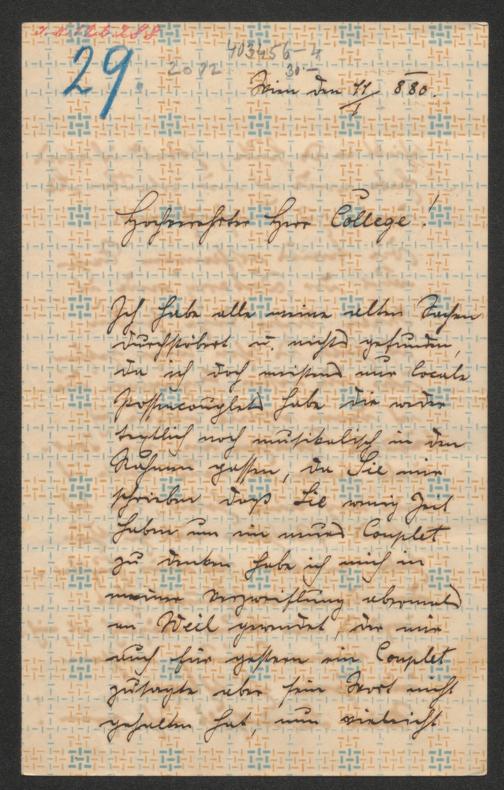 403456-4
29.
30.-
Wien den 11/1 880.
Hochverehrter Herr College!
Ich habe alle meine alten Sachen
durchstöbert u. nichts gefunden,
da ich doch meistens nur locale
Possencouplets habe die weder
textlich noch musikalisch in den
Rahmen passen, da Sie mir
schrieben daß Sie wenig Zeit
haben um ein neues Couplet
zu denken habe ich mich in
meiner Verzweiflung abermals
an Weil gewendet, der mir
auch für gestern ein Couplet
zusagte aber sein Wort nicht
gehalten hat, nun vieleicht